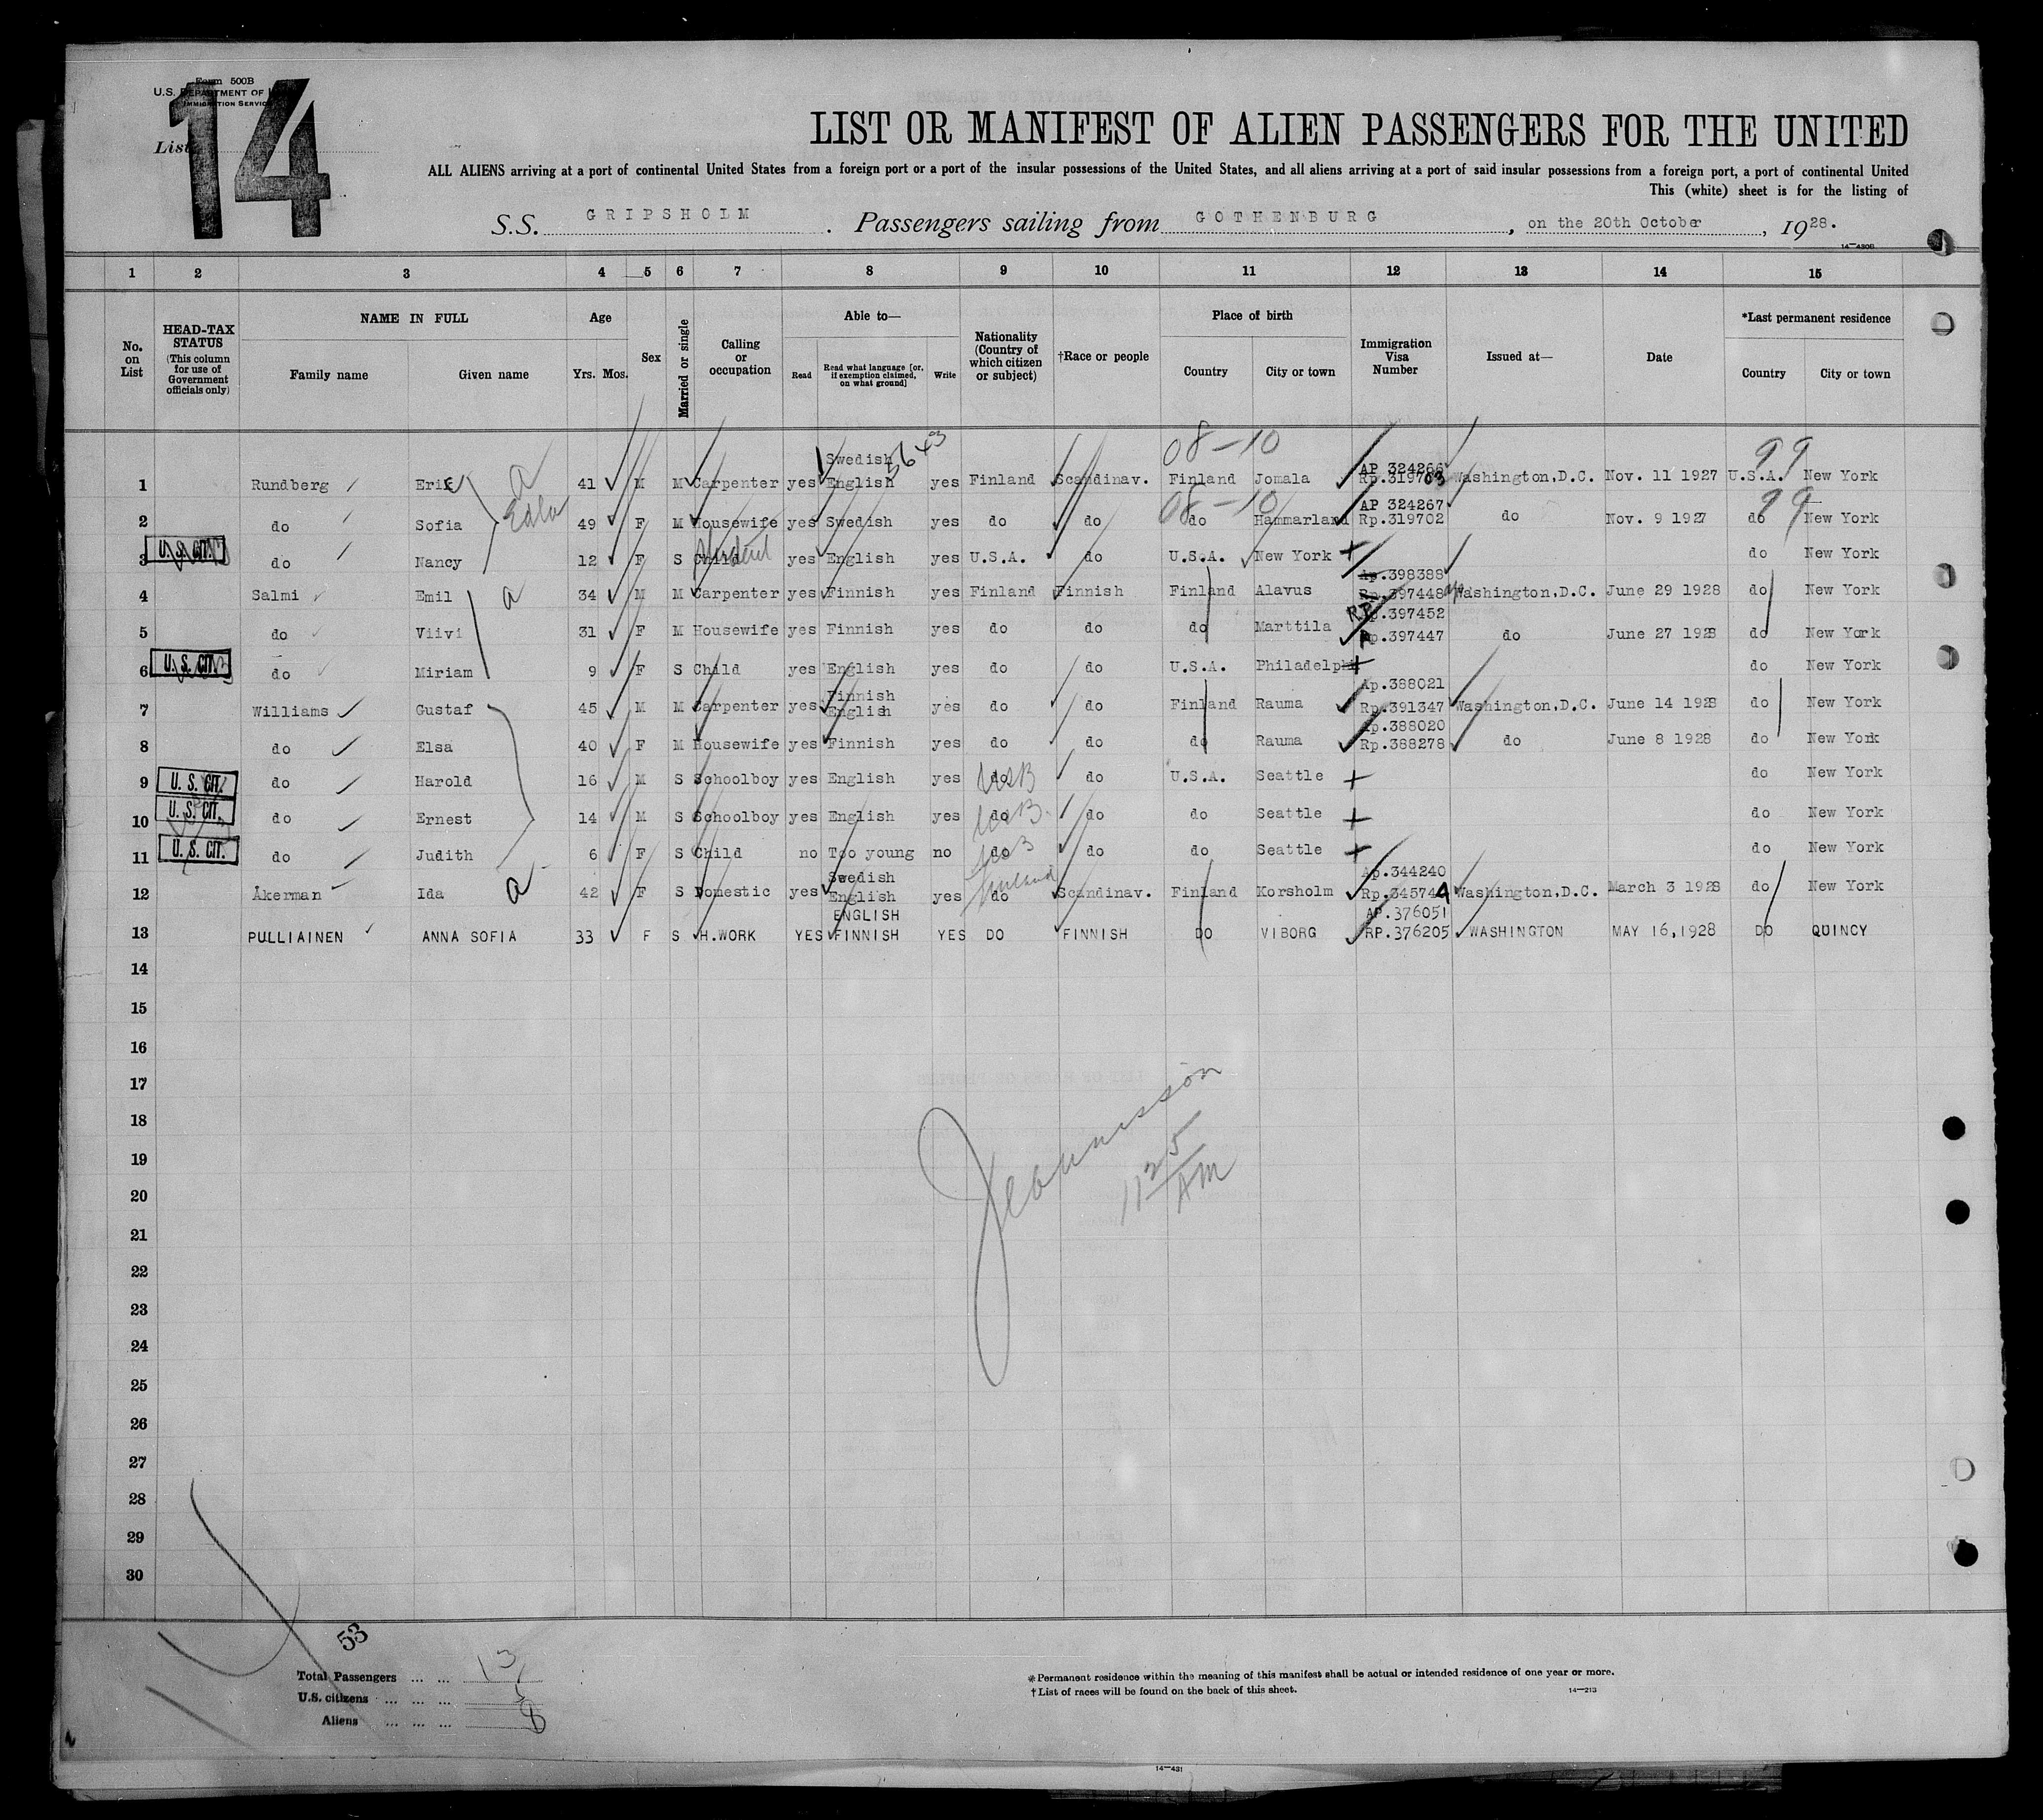 Form 500B
U.S. DEPARTMENT OF
IMMIGRATION SERVICE
List 14
LIST OR MANIFEST OF ALIEN PASSENGERS FOR THE UNITED
ALL ALIENS arriving at a port of continental United States from a foreign port or a port of the insular possessions of the United States, and all aliens arriving at a port of said insular possessions from a foreign port, a port of continental United
This (white) sheet is for the listing of
S.S. GRIPSHOLM. Passengers sailing from GOTHENBURG, on the 20th October, 1928.
14—430B
1 2 3 4 5 6 7 8 9 10 11 12 13 14 15
No. on List
HEAD-TAX STATUS (This column for use of Government officials only)
NAME IN FULL Family name Given name
Age Yrs. Mos.
Sex
Married or single
Calling or occupation
Able to— Read Read what language [or, if exemption claimed, on what ground] Write
Nationality (Country of which citizen or subject)
†Race or people
Place of birth Country City or town
Immigration Visa Number
Issued at—
Date
*Last permanent residence Country City or town
08-10 99
1 Rundberg Eric a 41 M M Carpenter yes Swedish English 5643 yes Finland Scandinav. Finland Jomala AP 324266 Rp.319703 Washington,D.C. Nov. 11 1927 U.S.A. New York
08-10 99
2 do Sofia Edla 49 F M Housewife yes Swedish yes do do do Hammarland AP 324267 Rp.319702 do Nov. 9 1927 do New York
U.S. CIT.
3 do Nancy 12 F S Child Student yes English yes U.S.A. do U.S.A. New York do New York
4 Salmi Emil a 34 M M Carpenter yes Finnish yes Finland Finnish Finland Alavus Ap.398388 Rp.397448 Washington,D.C. June 29 1928 do New York
5 do Viivi 31 F M Housewife yes Finnish yes do do do Marttila RP.397452 Ap.397447 do June 27 1928 do New York
U.S. CIT.
6 do Miriam 9 F S Child yes English yes do do U.S.A. Philadelphi do New York
7 Williams Gustaf 45 M M Carpenter yes Finnish English yes do do Finland Rauma Ap.388021 Rp.391347 Washington,D.C. June 14 1928 do New York
8 do Elsa 40 F M Housewife yes Finnish yes do do do Rauma Ap.388020 Rp.388278 do June 8 1928 do New York
U.S. CIT.
9 do Harold 16 M S Schoolboy yes English yes do do U.S.A. Seattle do New York
U.S. CIT.
10 do Ernest 14 M S Schoolboy yes English yes do do do Seattle do New York
U.S. CIT.
11 do Judith 6 F S Child no Too young no do do do Seattle do New York
12 Åkerman Ida a 42 F S Domestic yes Swedish English yes do Finland Scandinav. Finland Korsholm Ap.344240 Rp.345744 Washington,D.C. March 3 1928 do New York
13 PULLIAINEN ANNA SOFIA 33 F S H.WORK YES ENGLISH FINNISH YES DO FINNISH DO VIBORG AP.376051 RP.376205 WASHINGTON MAY 16,1928 DO QUINCY
14
15
16
17
18
19
20
21
22
23
24
25
26
27
28
29
30
11 25 AM
53
Total Passengers ... ... 13
U.S. citizens ... ... ... 5
Aliens ... ... ... 8
*Permanent residence within the meaning of this manifest shall be actual or intended residence of one year or more.
†List of races will be found on the back of this sheet.
14—213
14—431